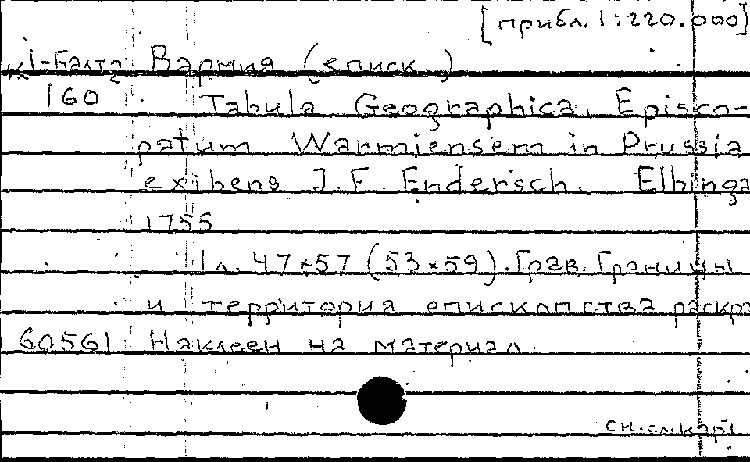 [прибл. 1:220.000]
Вармия (еписк.)
160 Tabula Geographica Episco-
patum Warmiensem in Prussia
exibens J.F. Endersch. Elbinga
1755
1 л. 47×57 (53×59). Грав. Границы
и территория епископства раскр
60561 Наклеен на материал.